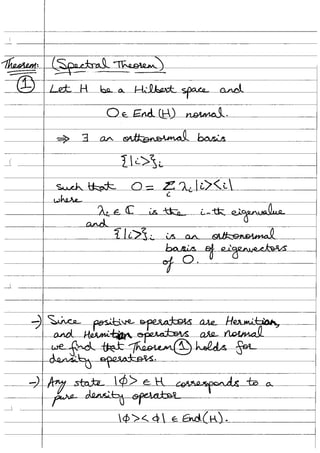 Theorem. (Spectral Theorem)
① Let H be a Hilbert space and
O ∈ End (H) normal.
⇒ ∃ an orthonormal basis
{|i>}ᵢ
such that O = Σᵢ λᵢ|i><i|
where
λᵢ ∈ ℂ is the i-th eigenvalue
and
{|i>}ᵢ is an orthonormal
basis of eigenvectors
of O.
→) Since positive operators are Hermitian,
and Hermitian operators are normal
we find that Theorem ① holds for
density operators.
→) Any state |ϕ> ∈ H corresponds to a
pure density operator
|ϕ><ϕ| ∈ End(H).